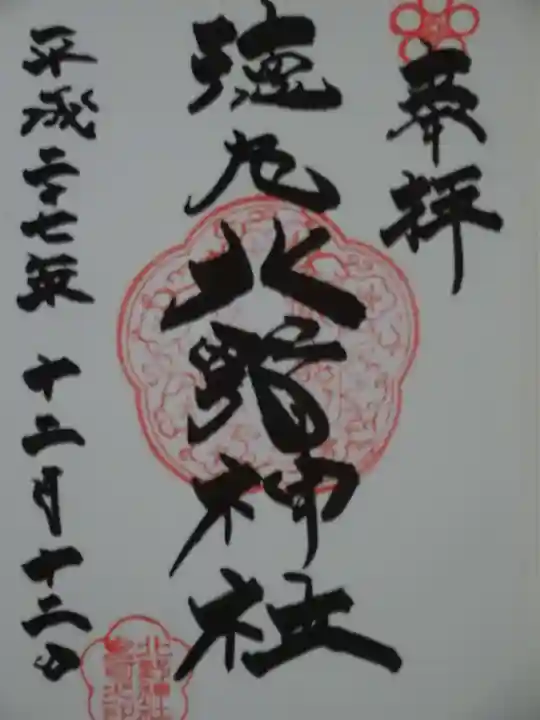 奉拝
徳丸北野神社
平成二十七年 十二月十二日
北野神社